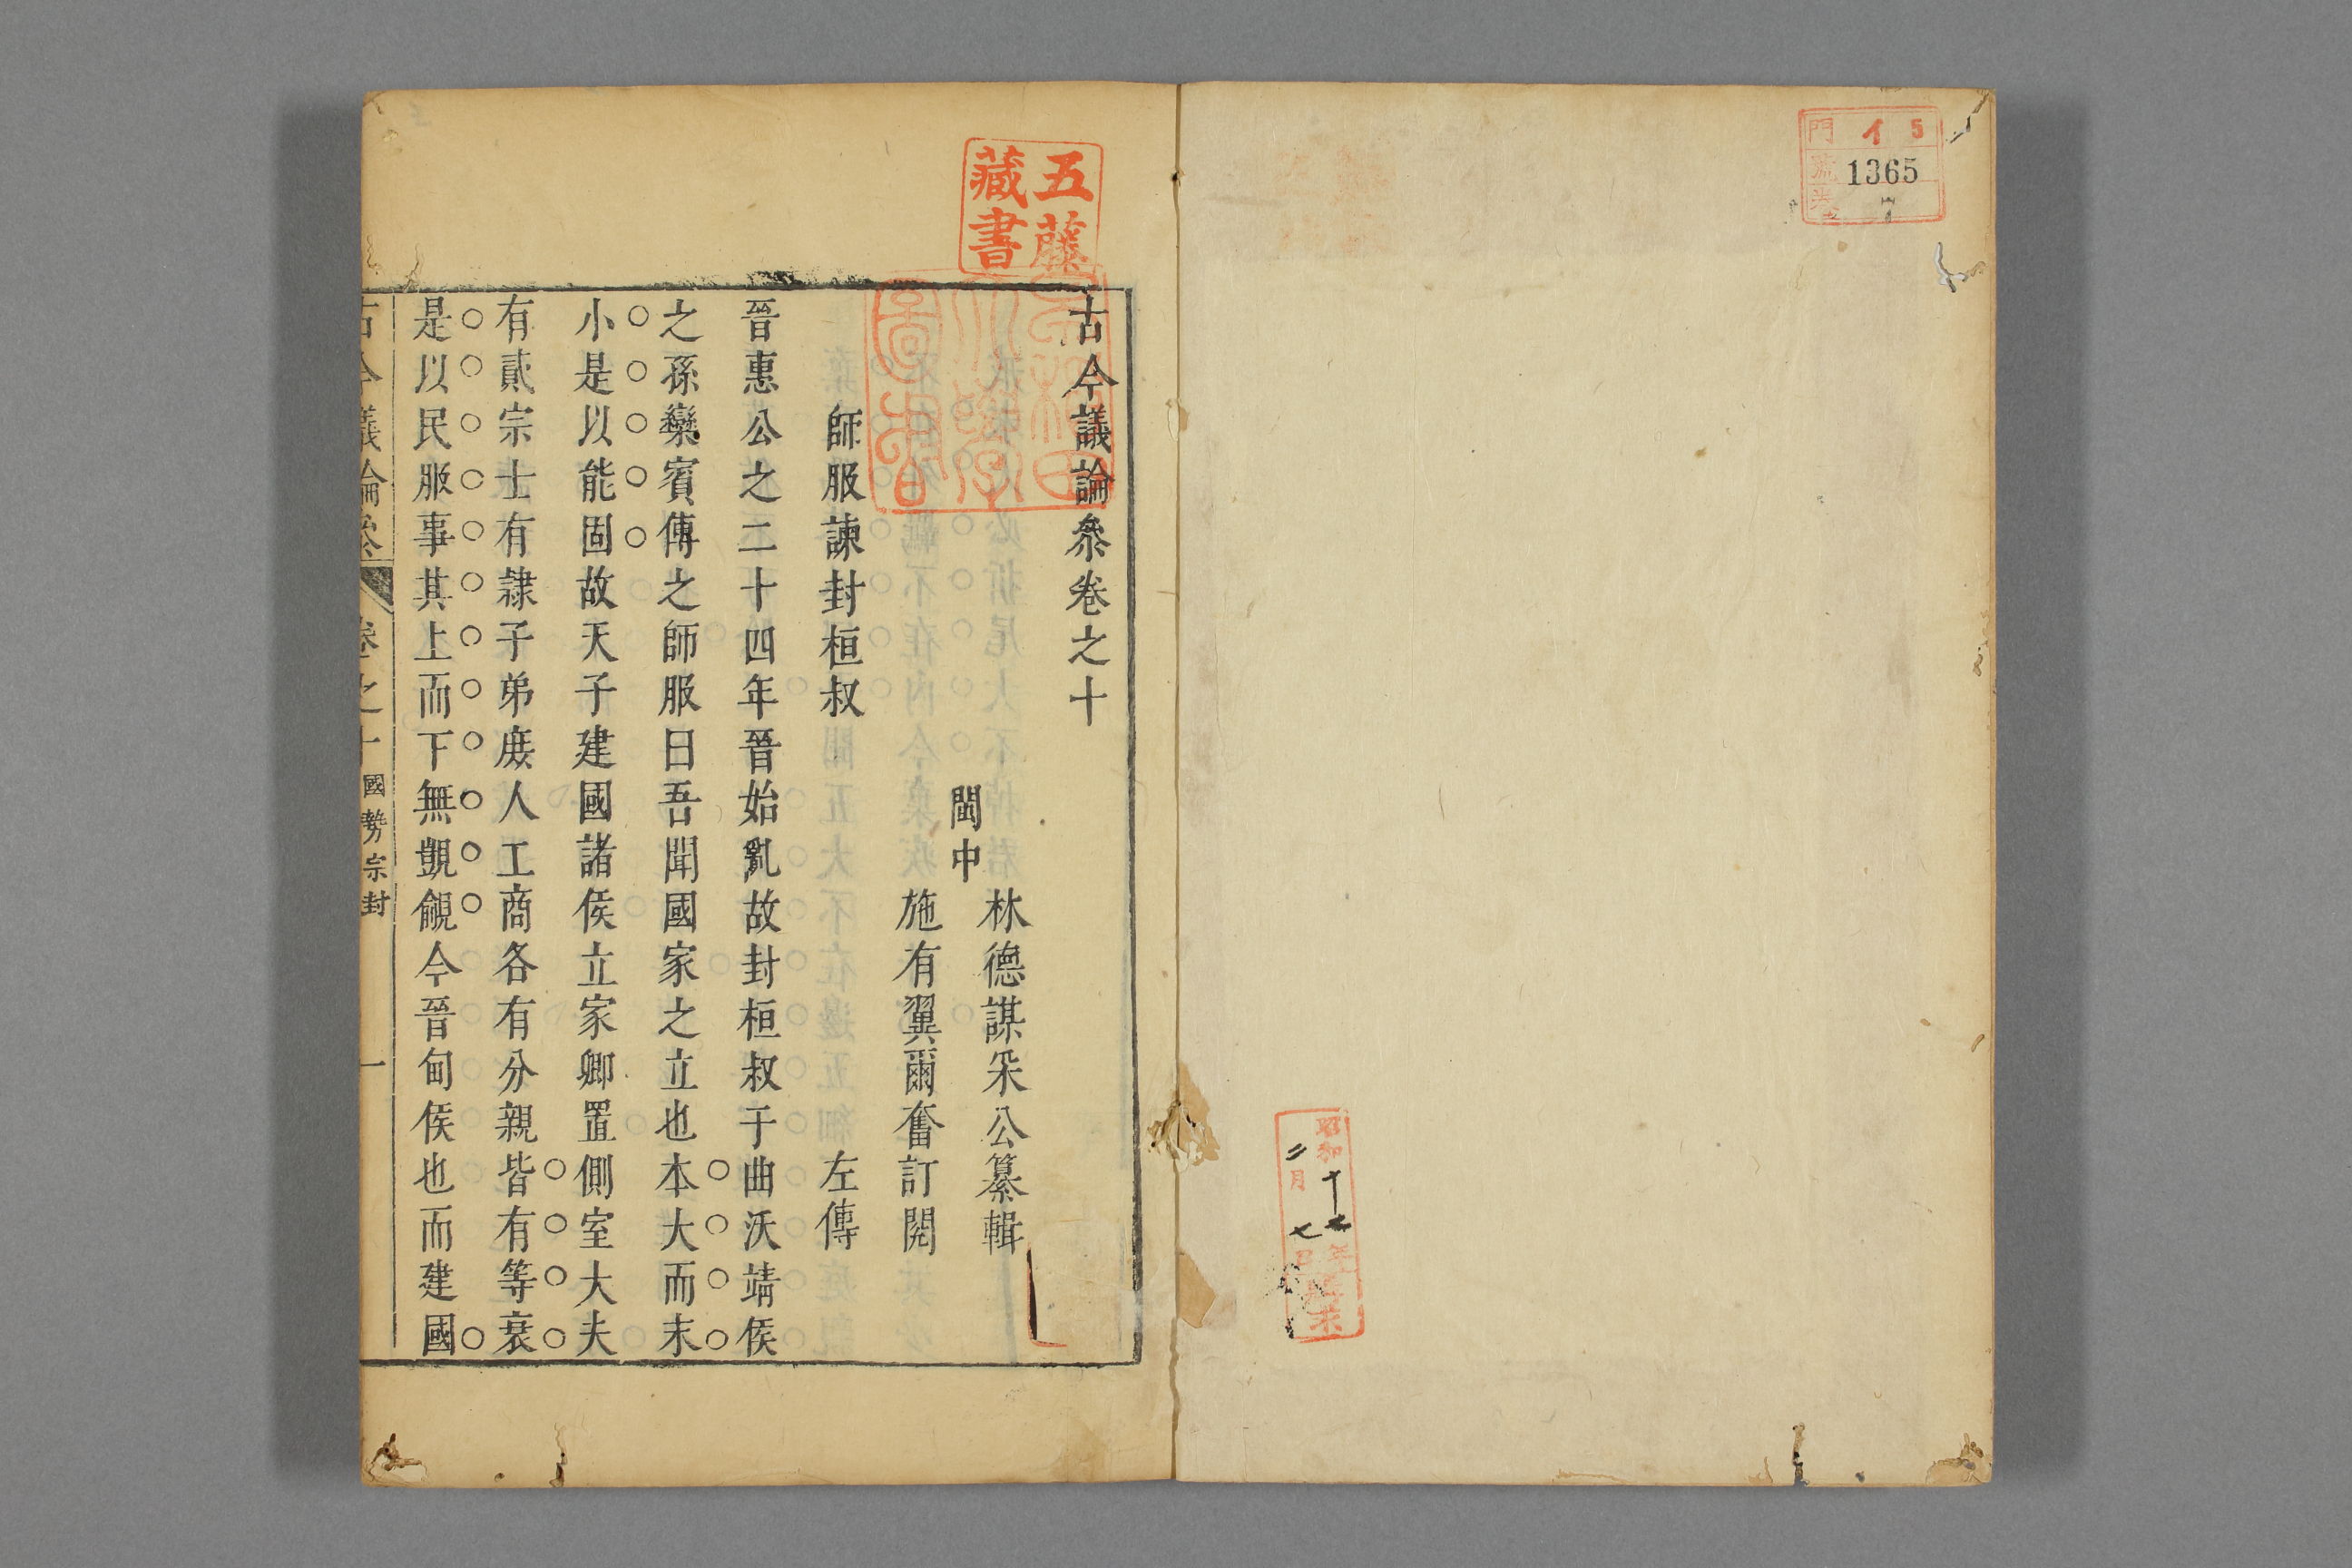 門 イ 5
號 1365
卷 7
昭和十七年
二月七日
購求
五藤
藏書
早稲田
大學
圖書
古今議論叅卷之十
閩中
林德謀采公纂輯
施有翼爾奮訂閱
師服諫封桓叔 左傳
晉惠公之二十四年晉始亂故封桓叔于曲沃靖侯
之孫欒賓傅之師服曰吾聞國家之立也本大而末
小是以能固故天子建國諸侯立家卿置側室大夫
有貳宗士有隷子弟庻人工商各有分親皆有等衰
是以民服事其上而下無覬覦今晉甸侯也而建國
古今議論叅 卷之十 國勢宗封 一